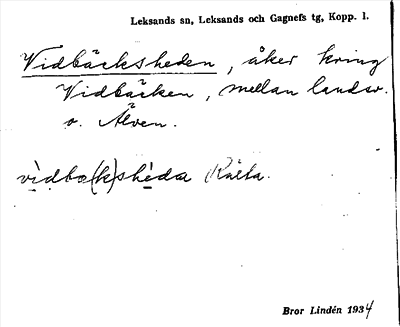 Leksands sn, Leksands och Gagnefs tg, Kopp. l.
Vidbäcksheden, åker kring
Vidbäcken, mellan landsv.
o. Älven.
vidbə(k)shèda Råtla.
Bror Lindén 1934